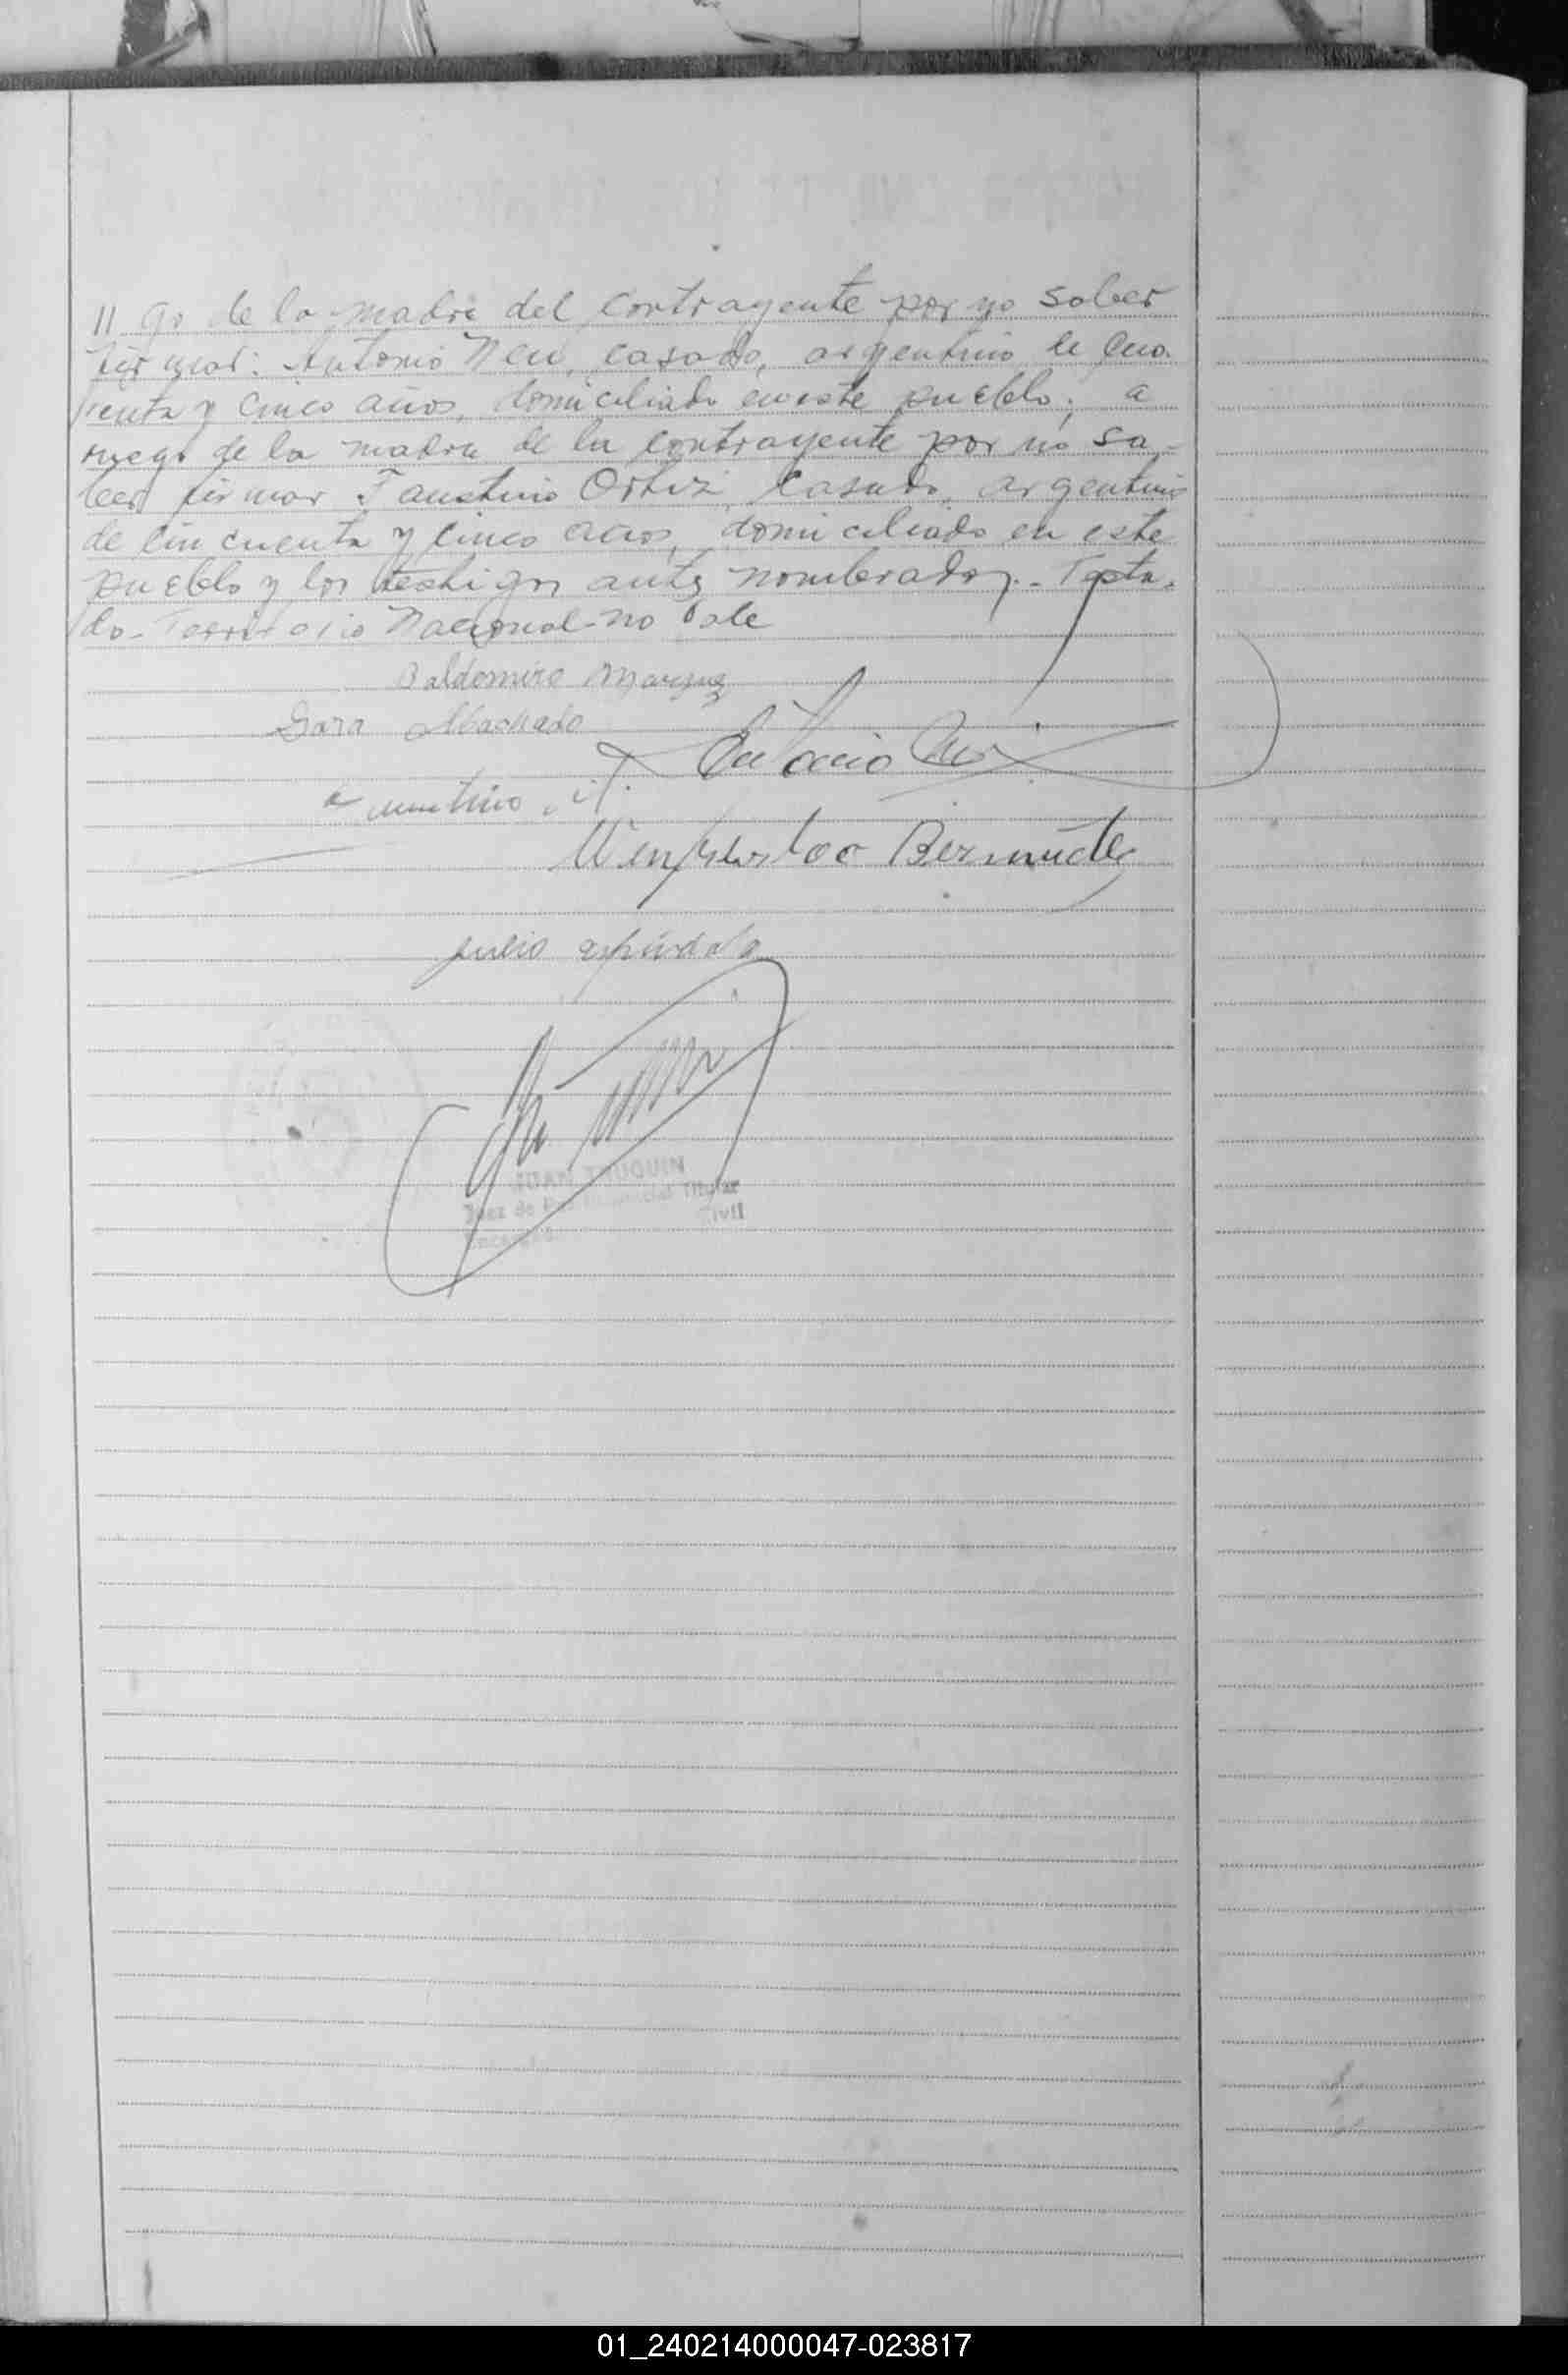 // go de la madre del contrayente por no saber
firmar: Antonio Neu, casado, argentino de cua-
renta y cinco años, domiciliado en este pueblo; a
ruego de la madre de la contrayente por no sa-
ber firmar Faustino Ortiz, casado, argentino
de cincuenta y cinco años, domiciliado en este
pueblo y los testigos antes nombrados.- Testa-
do- Territorio Nacional-no vale
Baldomiro Marquez
Sara Machado
Antonio
Wenseslao Bermudez
julio espindola
JUAN
Juez de Titular
Civil
01_240214000047-023817